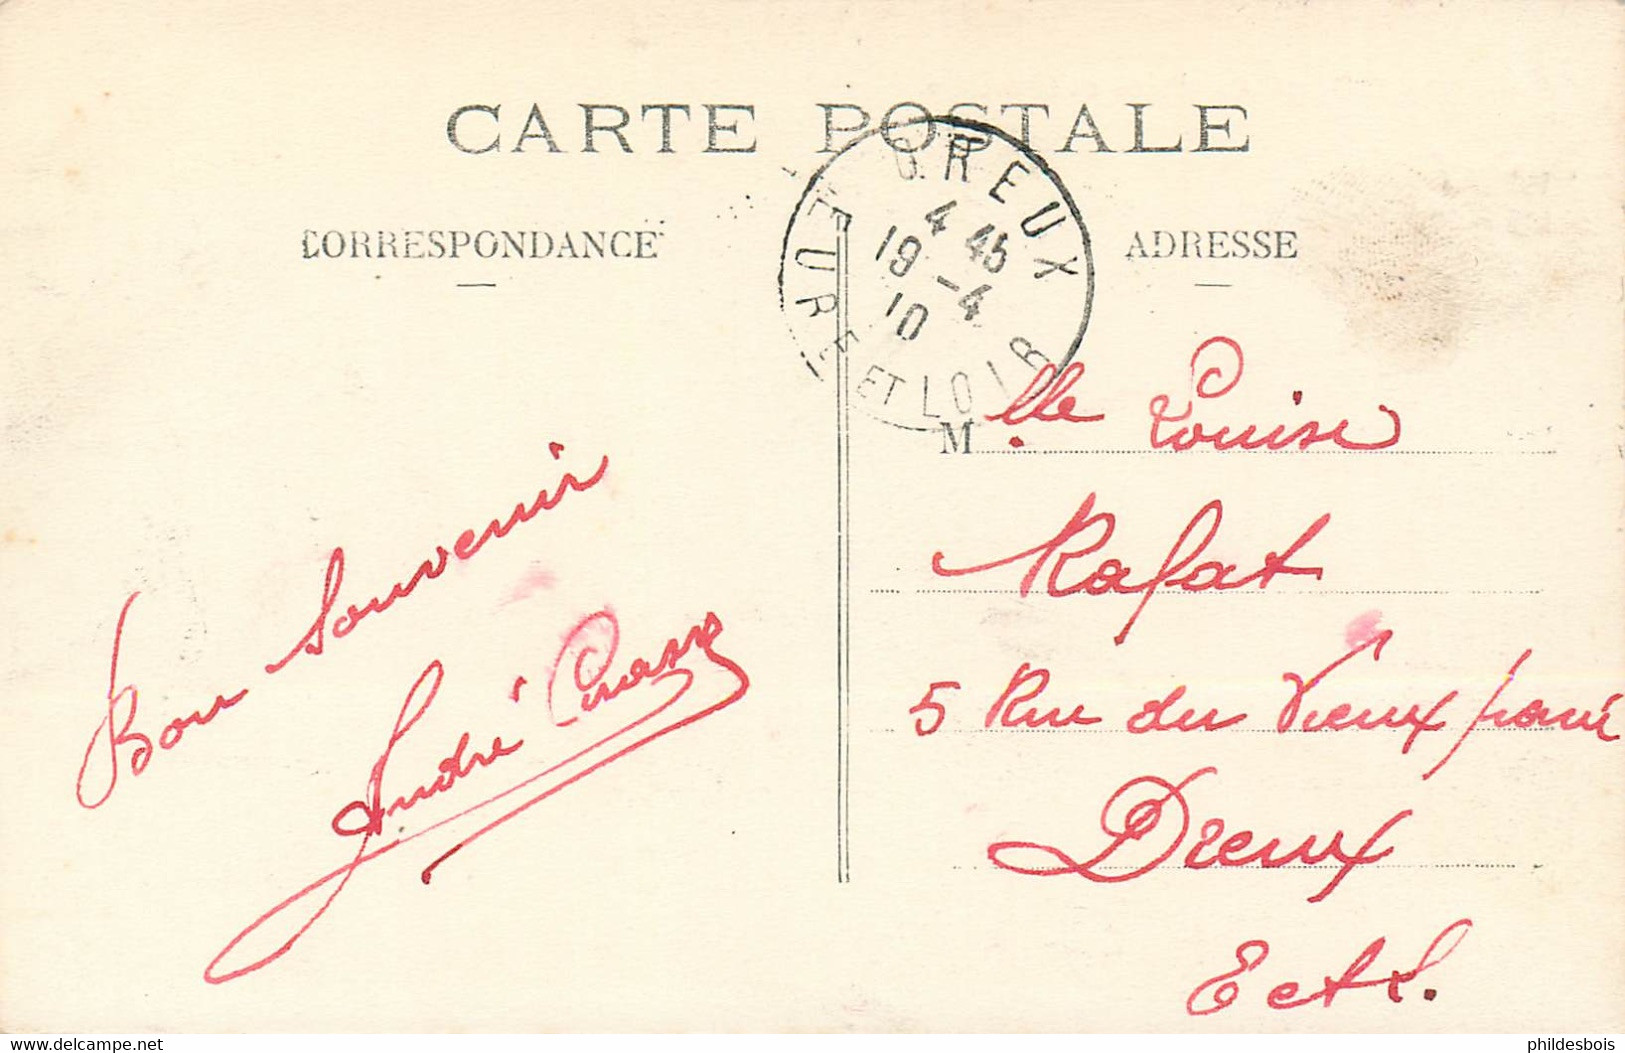 CARTE POSTALE
CORRESPONDANCE
ADRESSE
DREUX
4 45
19 - 4
10
EURE ET LOIR
Bon souvenir
André
Mlle Louise
Rafat
5 Rue du Vieux pavé
Dreux
E et L.
delcampe.net
phildesbois